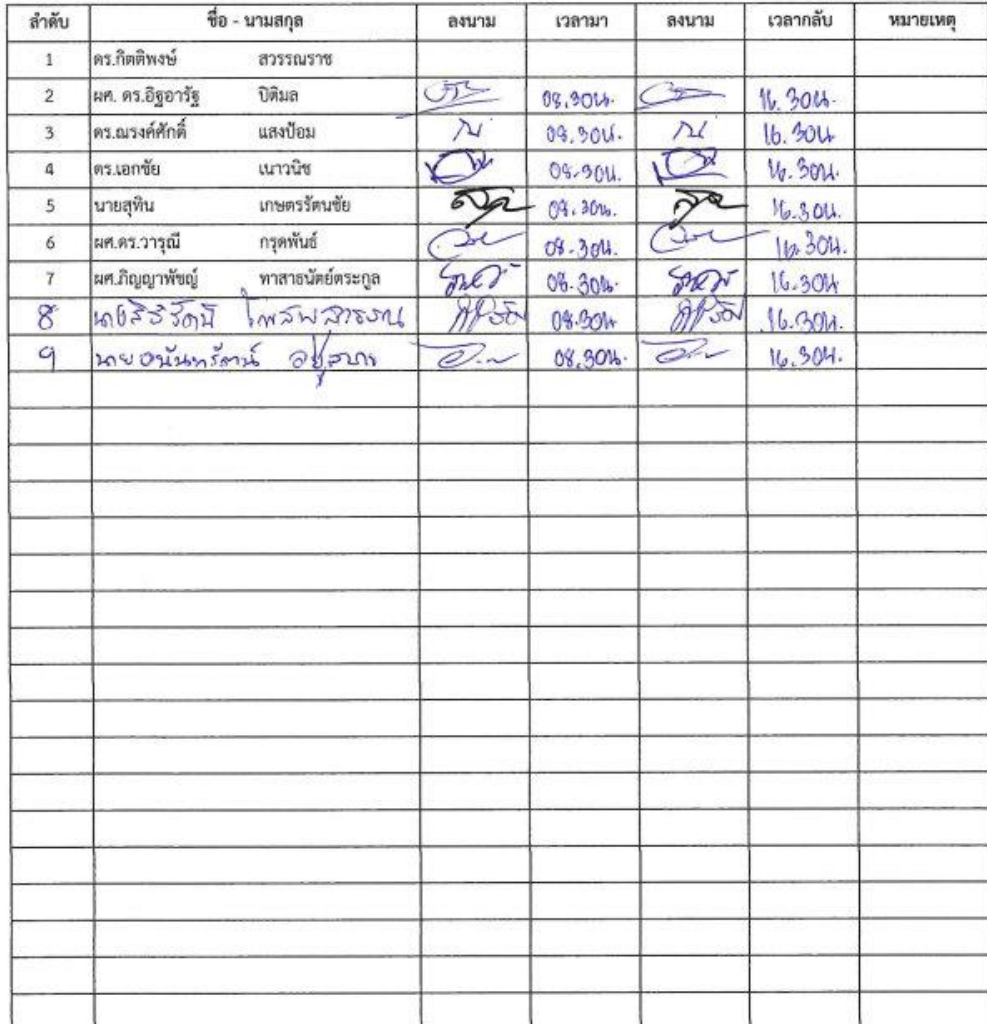 ลำดับ ชื่อ - นามสกุล ลงนาม เวลามา ลงนาม เวลากลับ หมายเหตุ
1 ดร.กิตติพงษ์ สวรรณราช
2 ผศ. ดร.อิฐอารัฐ ปิติมล 08.30น. 16.30น.
3 ดร.ณรงค์ศักดิ์ แสงป้อม 08.30น. 16.30น
4 ดร.เอกชัย เนาวนิช 08.30น. 16.30น.
5 นายสุทิน เกษตรรัตนชัย 08.30น. 16.30น.
6 ผศ.ดร.วารุณี กรุดพันธ์ 08.30น. 16.30น.
7 ผศ.ภิญญาพัชญ์ ทาสาธนัตย์ตระกูล 08.30น. 16.30น
8 08.30น 16.30น.
9 นาย 08.30น. 16.30น.